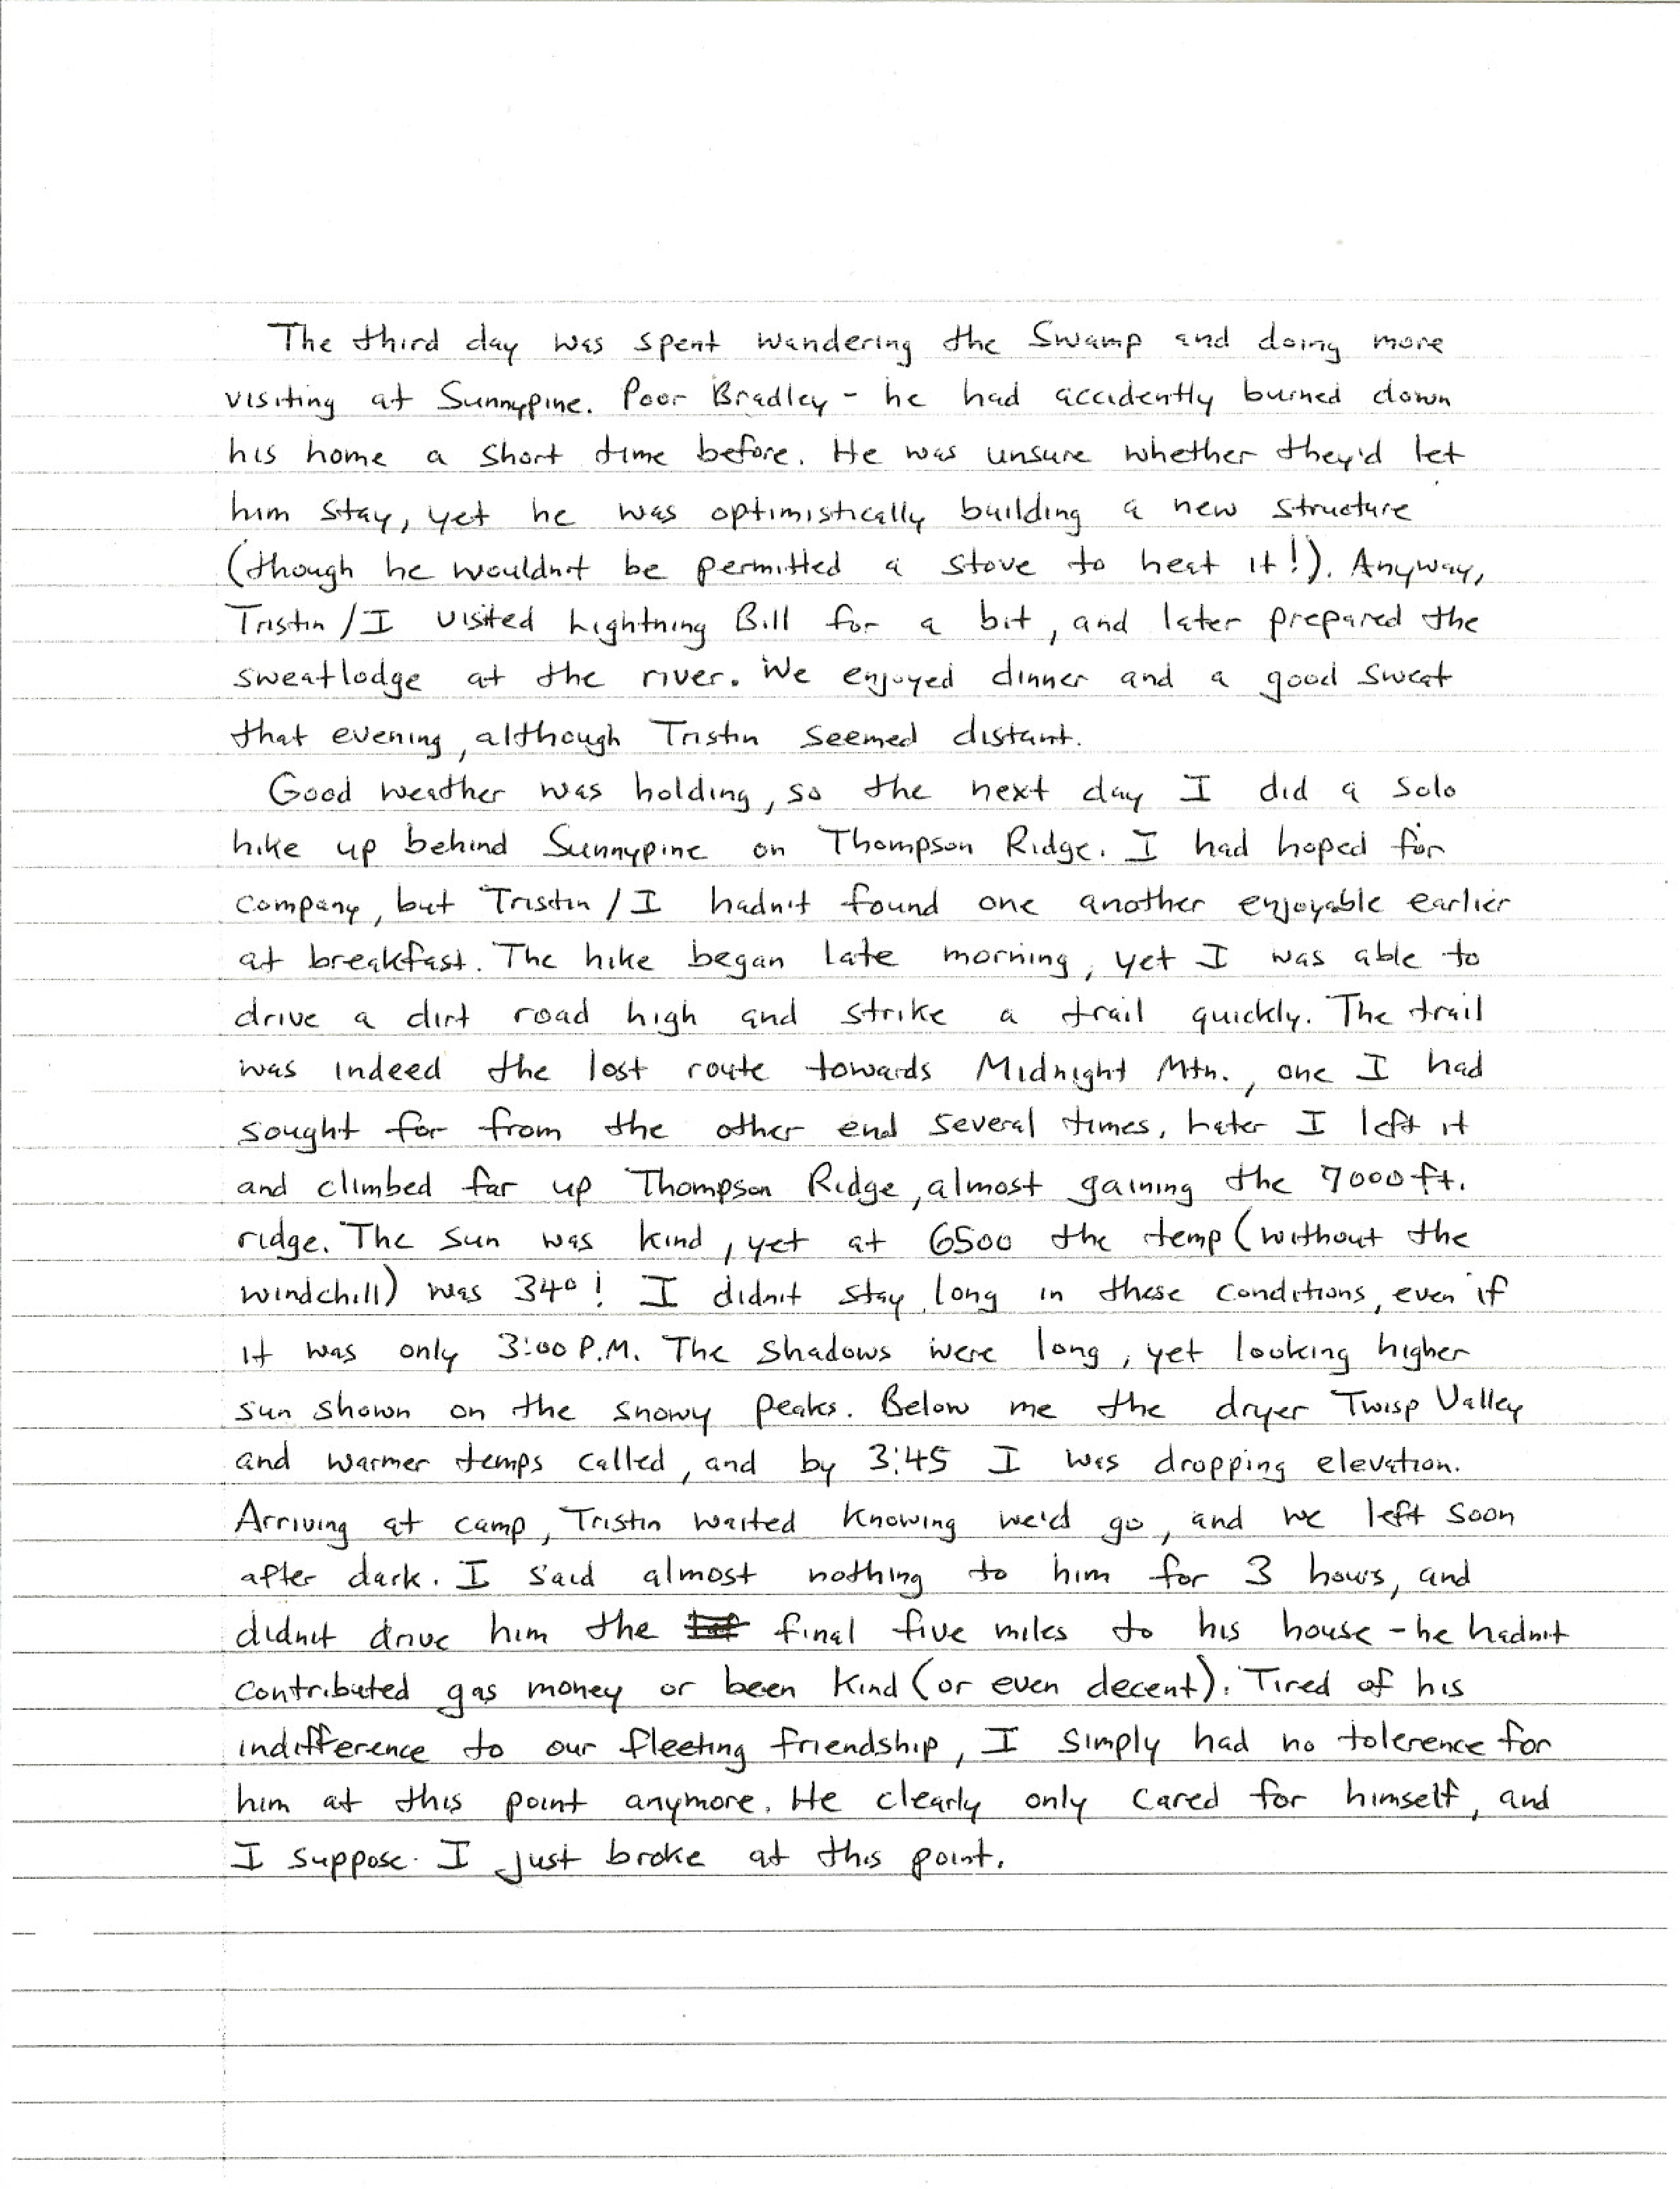 The third day was spent wandering the Swamp and doing more
visiting at Sunnypine. Poor Bradley - he had accidently burned down
his home a short time before. He was unsure whether they'd let
him stay, yet he was optimistically building a new structure
(though he wouldn't be permitted a stove to heat it!). Anyway,
Tristin/I visited Lightning Bill for a bit, and later prepared the
sweatlodge at the river. We enjoyed dinner and a good sweat
that evening, although Tristin seemed distant.
Good weather was holding, so the next day I did a solo
hike up behind Sunnypine on Thompson Ridge. I had hoped for
company, but Tristin/I hadn't found one another enjoyable earlier
at breakfast. The hike began late morning, yet I was able to
drive a dirt road high and strike a trail quickly. The trail
was indeed the lost route towards Midnight Mtn., one I had
sought for from the other end several times. Later I left it
and climbed far up Thompson Ridge, almost gaining the 7000 ft.
ridge. The sun was kind, yet at 6500 the temp (without the
windchill) was 34°! I didn't stay long in these conditions, even if
it was only 3:00 P.M. The shadows were long, yet looking higher
sun shown on the snowy peaks. Below me the dryer Twisp Valley
and warmer temps called, and by 3:45 I was dropping elevation.
Arriving at camp, Tristin waited knowing we'd go, and we left soon
after dark. I said almost nothing to him for 3 hours, and
didn't drive him the final five miles to his house - he hadn't
contributed gas money or been kind (or even decent). Tired of his
indifference to our fleeting friendship, I simply had no tolerence for
him at this point anymore. He clearly only cared for himself, and
I suppose I just broke at this point.